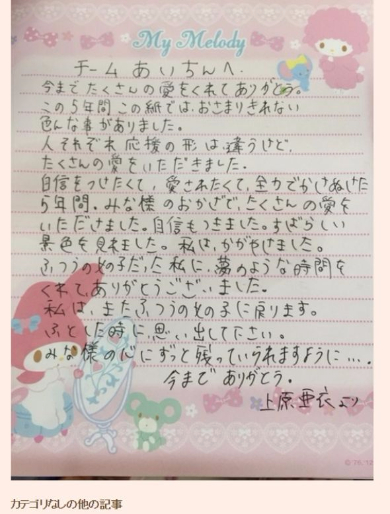 My Melody
チームあいちんへ.
今までたくさんの愛をくれてありがとう。
この5年間この紙では、おさまりきれない
色んな事がありました。
人それぞれ応援の形は違うけど、
たくさんの愛をいただきました。
自信をつけたくて、愛されたくて、全力でかけぬけた
5年間. みな様のおかげで、たくさんの愛を
いただけました。自信もつきました。すばらしい
景色を見れました。私は、かがやけました。
ふつうの女の子だった私に、夢のような時間を
くれて、ありがとうございました。
私は、またふつうの女の子に戻ります。
ふとした時に、思い出して下さい。
みな様の心にずっと残っていられますように….
今までありがとう。
上原亜衣より
カテゴリなしの他の記事